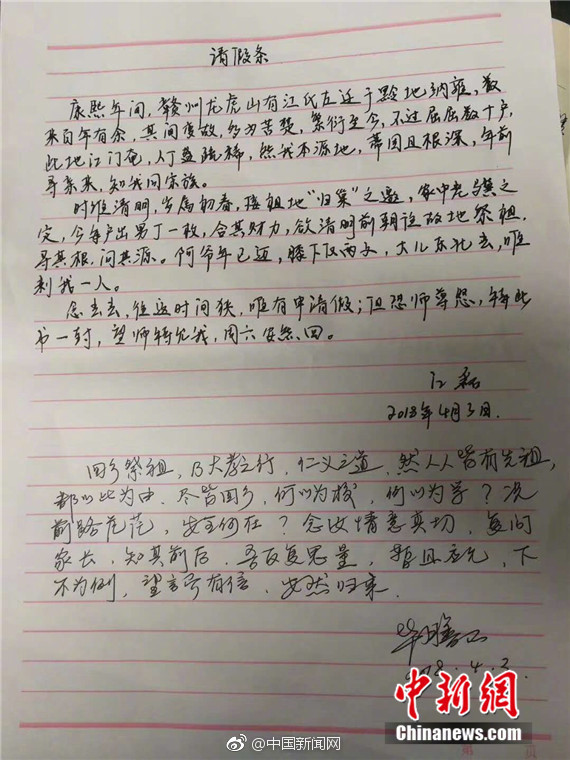 请假条
康熙年间，赣州龙虎山有江氏左迁于黔地纳雍，数
来百年有余，其间变故，多为苦楚，繁衍至今，不过屈屈数十户，
此地江门奄，人丁益疏稀，然我本源地，蒂固且根深，年前
寻亲来，知我同宗族。
时惟清明，岁属初春，接祖地“归巢”之邀，家中老骥之
定，今每户出男丁一枚，合其财力，欲清明前朝诣故地祭祖，
寻其根，问其源。阿爷年已迈，膝下仅两女，大儿东北去，唯
剩我一人。
念去去，往返时间狭，唯有申请假；但恐师尊怨，特此
书一封，望师特允我，周六安然回。
江磊
2018年4月3日.
回乡祭祖，乃大孝之行，仁义之道，然人人皆有先祖，
都以此为由，尽皆回乡，何以为校，何以为学？况
前路茫茫，安在何在？念汝情意真切，复问
家长，知其前后，吾反复思量，暂且应允，下
不为例，望言而有信，安然归来.
2018.4.3.
中新网
Chinanews.com
@中国新闻网
第 页